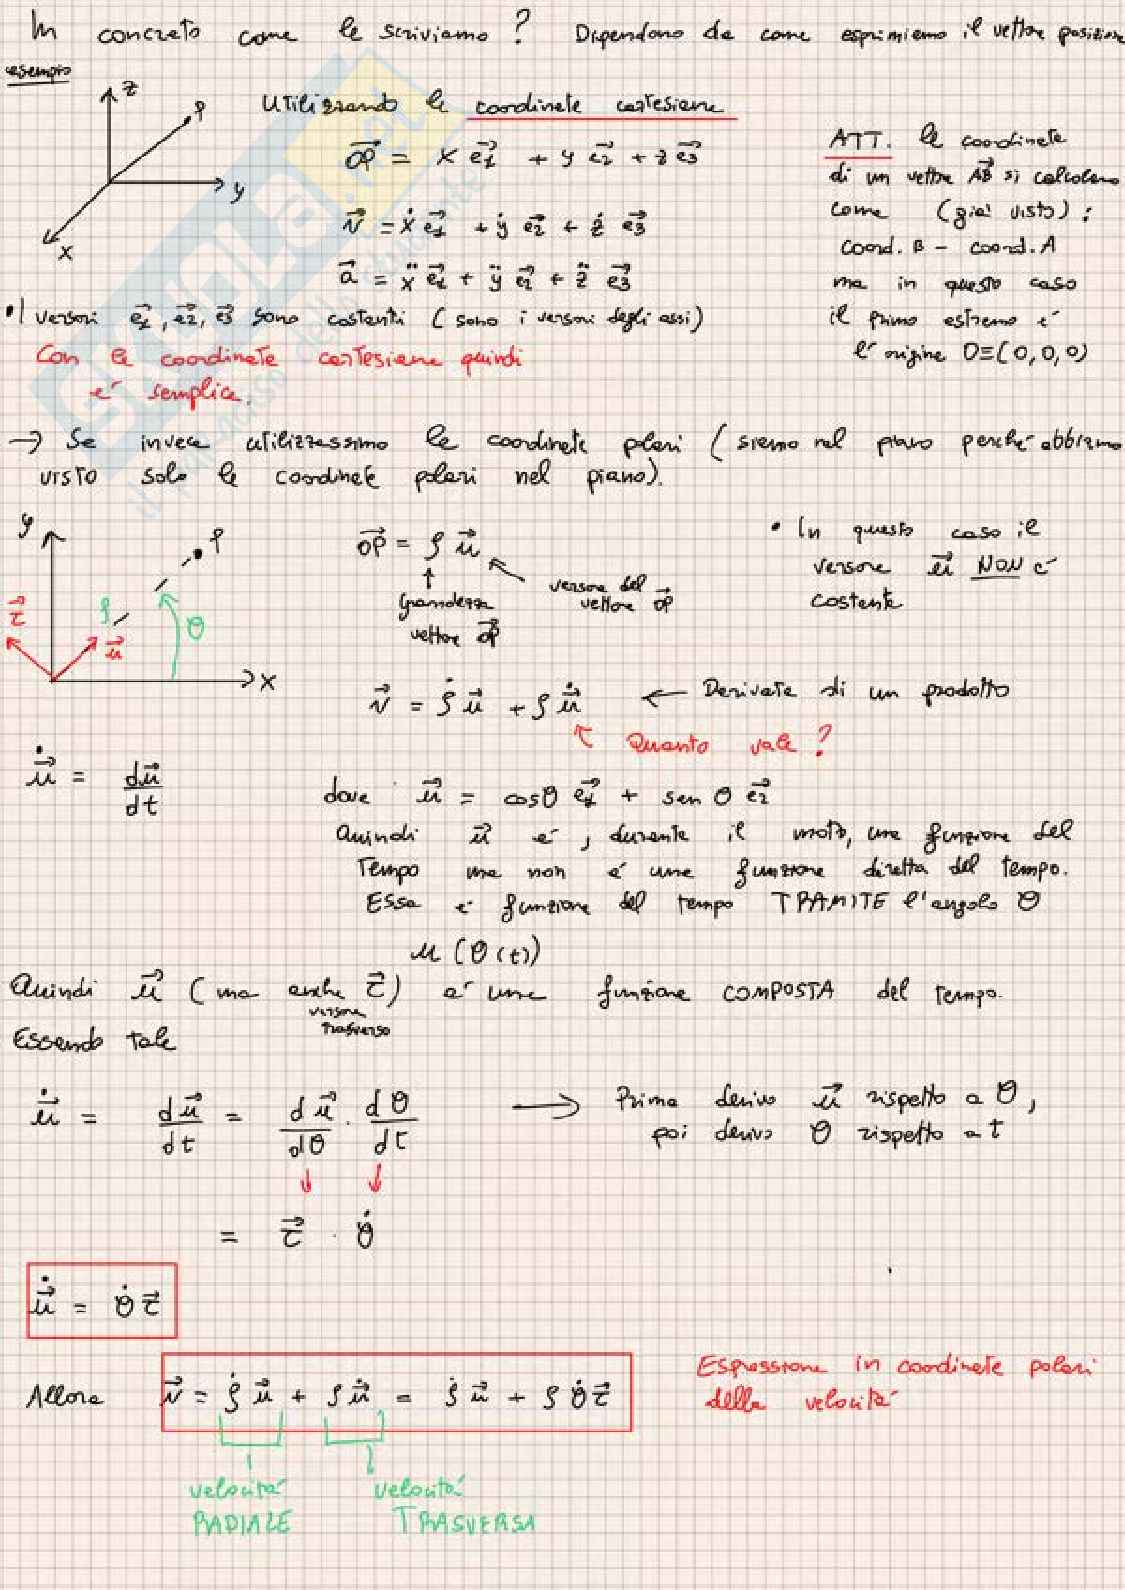 In concreto come le scriviamo? Dipendono da come esprimiamo il vettore posizione
esempio
Utilizzando le coordinate cartesiane
z
P
y
x
OP⃗ = x e₁⃗ + y e₂⃗ + z e₃⃗
v⃗ = ẋ e₁⃗ + ẏ e₂⃗ + ż e₃⃗
a⃗ = ẍ e₁⃗ + ÿ e₂⃗ + z̈ e₃⃗
ATT. le coordinate
di un vettore AB⃗ si calcolano
come (gia' visto):
coord. B - coord. A
ma in questo caso
il primo estremo e'
l'origine O≡(0,0,0)
• I versori e₁⃗, e₂⃗, e₃⃗ sono costanti (sono i versori degli assi)
Con le coordinate cartesiane quindi
e' semplice.
→ Se invece utilizzassimo le coordinate polari (siamo nel piano perché abbiamo
visto solo le coordinate polari nel piano).
y
P
τ⃗
ρ
u⃗
θ
x
OP⃗ = ρ u⃗
grandezza
vettore OP⃗
versore del
vettore OP⃗
• In questo caso il
versore u⃗ NON e'
costante
v⃗ = ρ̇ u⃗ + ρ u̇⃗ ← Derivata di un prodotto
↖ Quanto vale?
u̇⃗ = du⃗/dt
dove u⃗ = cosθ e₁⃗ + sen θ e₂⃗
Quindi u⃗ e', durante il moto, una funzione del
tempo ma non e' una funzione diretta del tempo.
Essa e' funzione del tempo TRAMITE l'angolo θ
u(θ(t))
Quindi u⃗ (ma anche τ⃗) e' una funzione COMPOSTA del tempo.
versore
trasverso
Essendo tale
u̇⃗ = du⃗/dt = du⃗/dθ · dθ/dt → Prima derivo u⃗ rispetto a θ,
poi derivo θ rispetto a t
= τ⃗ · θ̇
u̇⃗ = θ̇ τ⃗
Allora v⃗ = ρ̇ u⃗ + ρ u̇⃗ = ρ̇ u⃗ + ρ θ̇ τ⃗
Espressione in coordinate polari
della velocità
velocità
RADIALE
velocità
TRASVERSA